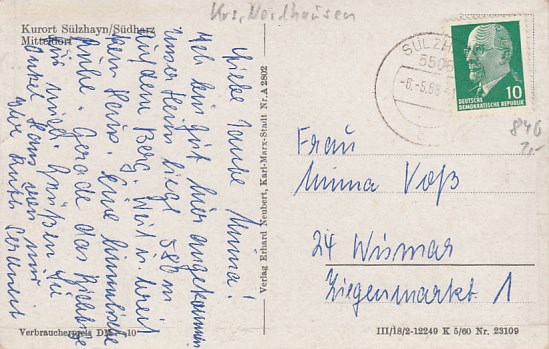 Krs. Nordhausen
Kurort Sülzhayn/Südharz
Mitteldorf
Liebe Tante Minna!
Ich bin gut hier angekommen.
Unser Heim liegt 580 m
auf dem Berg. Weit u. breit
kein Haus. Eine himmlische
Ruhe. Gerade das Richtige
für mich. Grüßen Sie
Onkel Hans von mir
Ihre
Verlag Erhard Neubert, Karl-Marx-Stadt Nr. A 2802
SÜLZH
5506
-6.-5.68
10
DEUTSCHE
DEMOKRATISCHE REPUBLIK
846
Frau
Minna Voß
24 Wismar
Ziegenmarkt 1
Verbraucherpreis DM -,10
III/18/2-12249 K 5/60 Nr. 23109